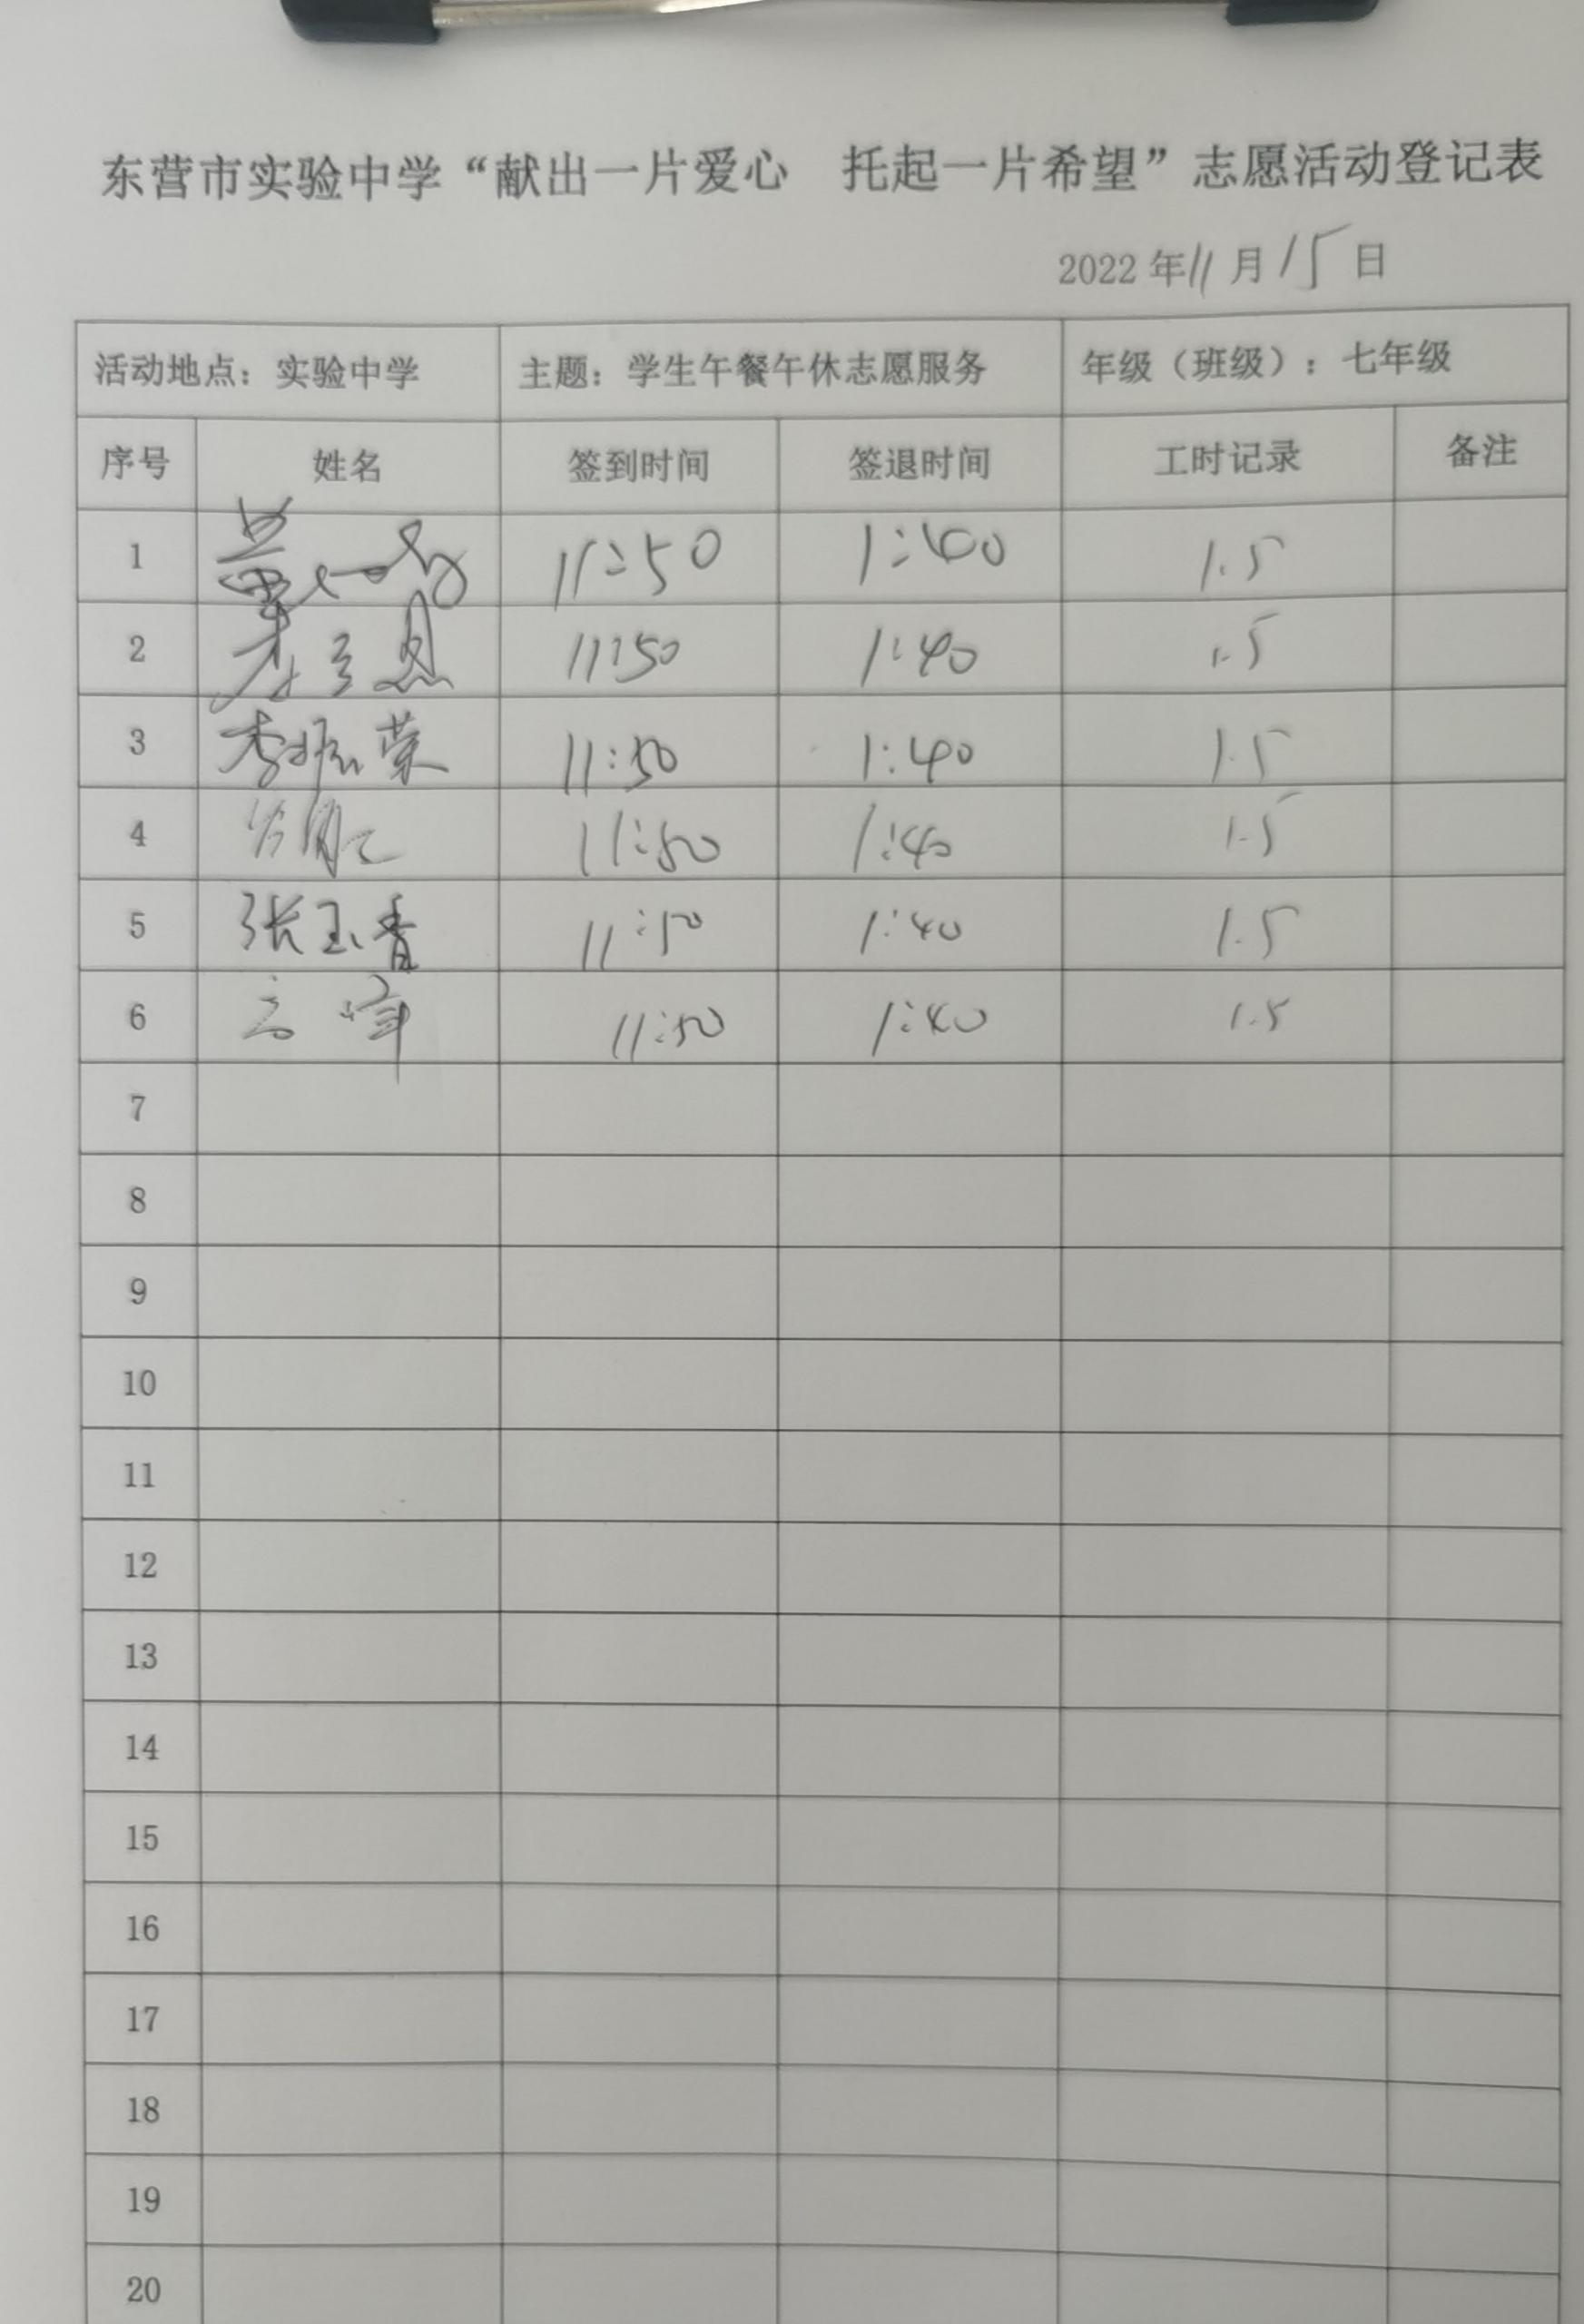 东营市实验中学“献出一片爱心 托起一片希望”志愿活动登记表
2022年11月15日
活动地点：实验中学 主题：学生午餐午休志愿服务 年级（班级）：七年级
序号 姓名 签到时间 签退时间 工时记录 备注
1 11:50 1:40 1.5
2 11:50 1:40 1.5
3 李振荣 11:50 1:40 1.5
4 11:50 1:40 1.5
5 张玉香 11:50 1:40 1.5
6 11:50 1:40 1.5
7
8
9
10
11
12
13
14
15
16
17
18
19
20